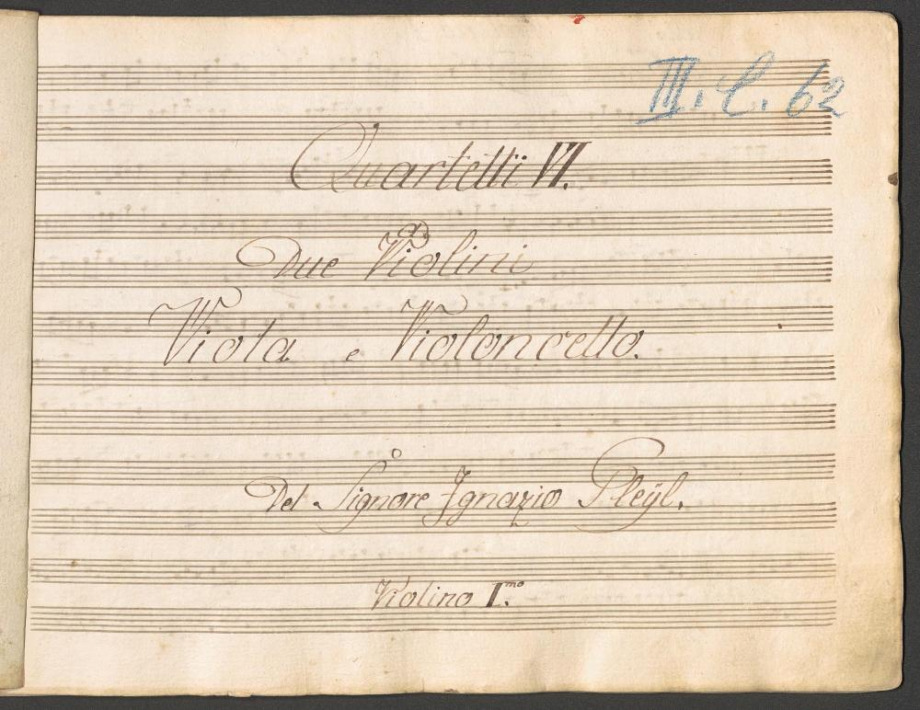 III. C. 62
Quartetti VI.
a
Due Violini
Viola e Violoncello.
Del Signore Ignazio Pleÿl.
Violino I.mo